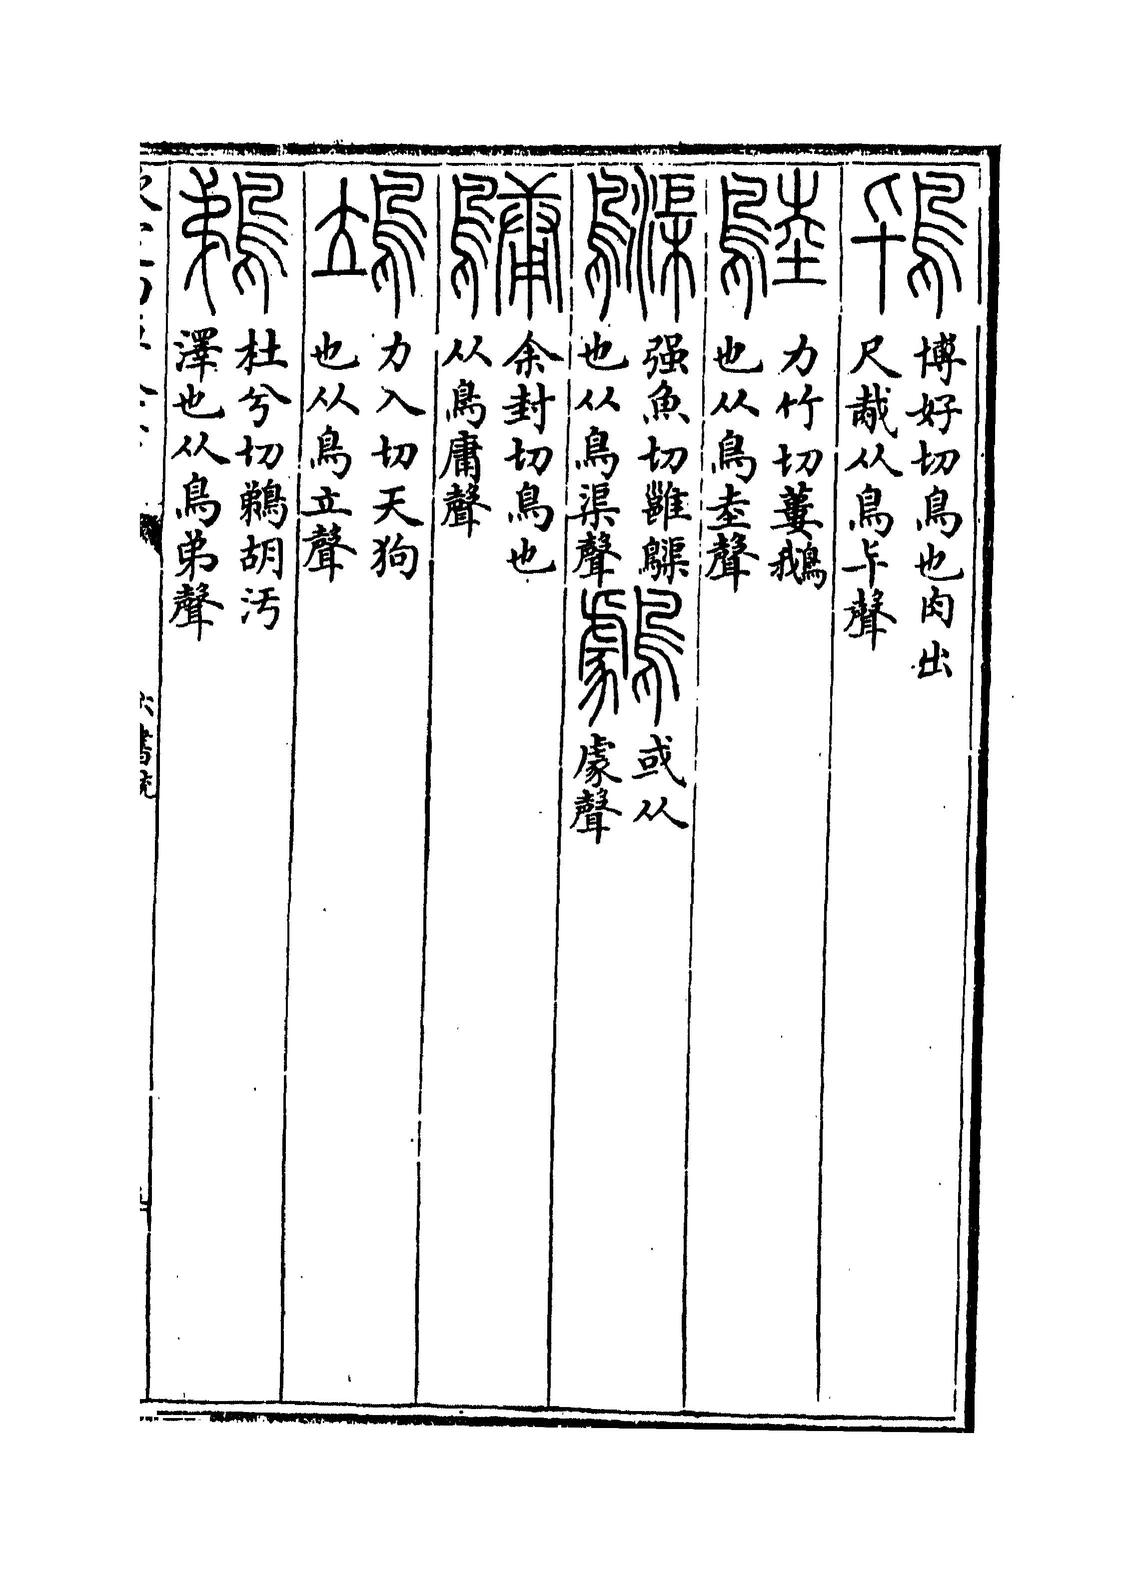 鴇
博好切鳥也肉出
尺胾从鳥𠤏聲
鵱
力竹切蔞鵝
也从鳥坴聲
䲽
强魚切雝䲽
也从鳥渠聲
或从
豦聲
鷛
余封切鳥也
从鳥庸聲
鴗
力入切天狗
也从鳥立聲
鵜
杜兮切鵜胡污
澤也从鳥弟聲
六書統